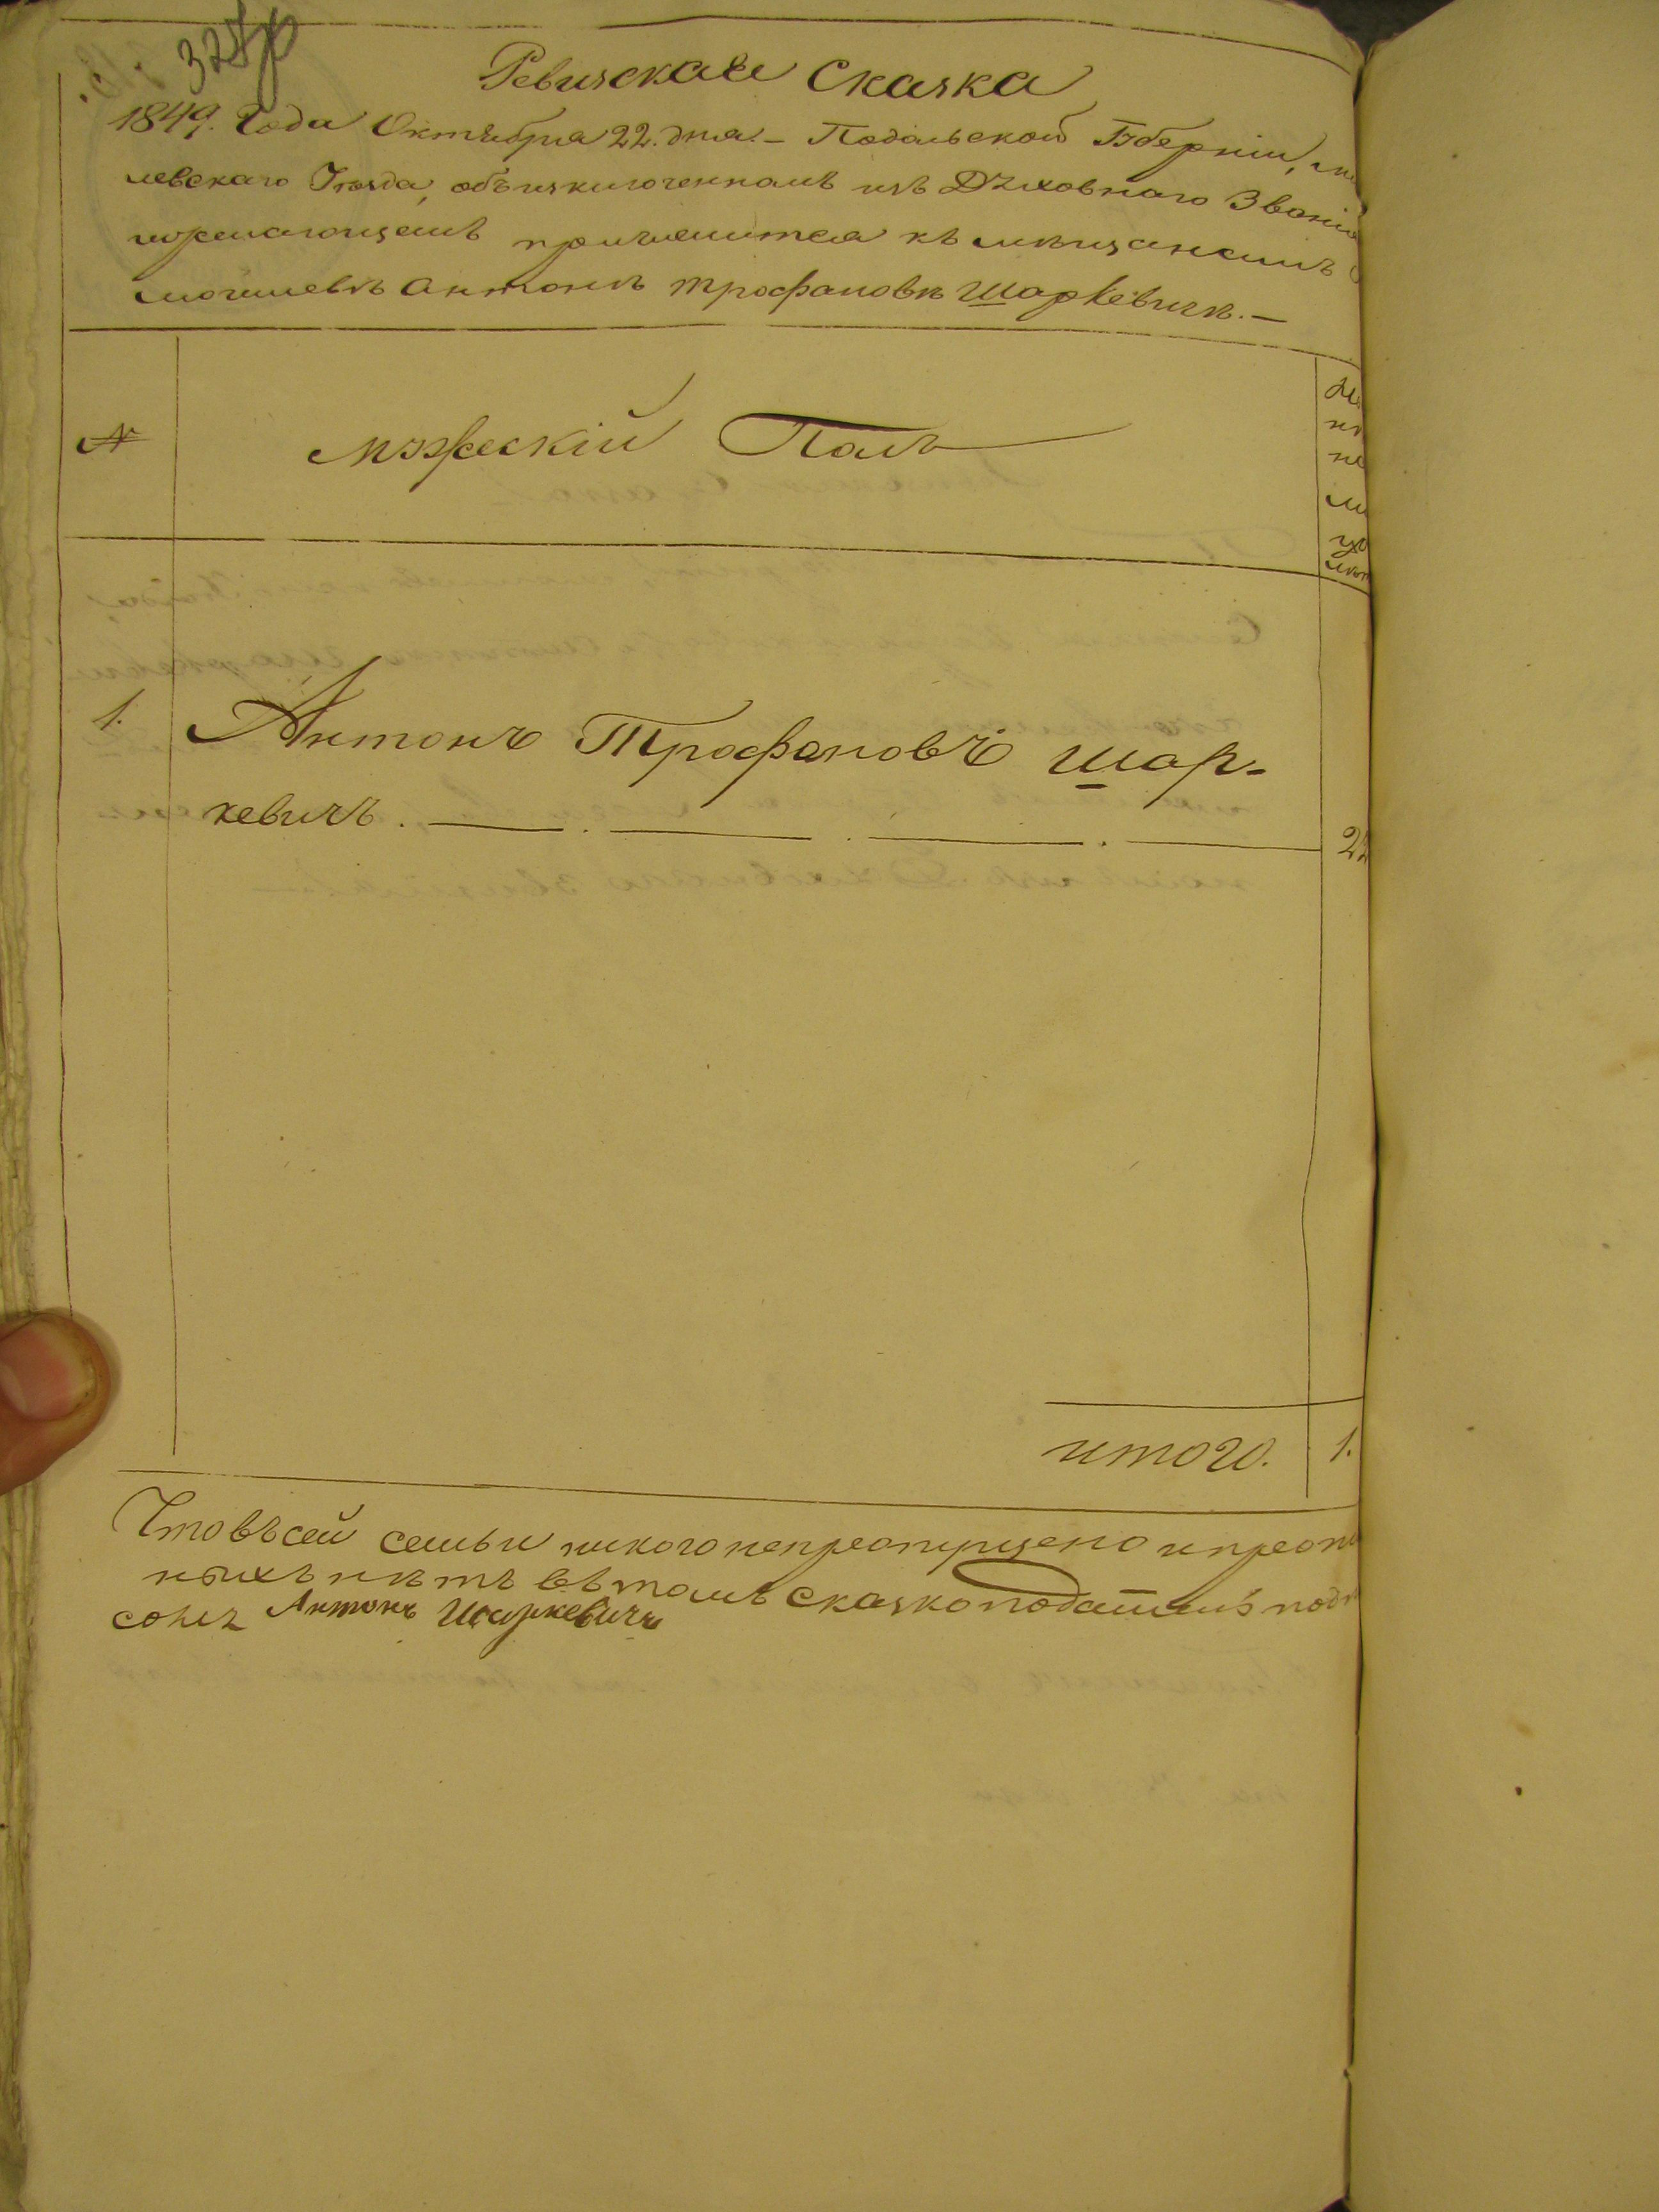 Ревизская Сказка
1849. Года Октября 22. дня. – Подольской Губерніи,
левскаго Уѣзда, объ изключенномъ изъ Духовнаго Званія
причислится къ мѣщанамъ
могилевѣ Антонѣ Трофановѣ Шаркевичѣ. –
№ Мужескій Полъ
1. Антонъ Трофановъ Шар-
кевичъ.
итого. 1.
Что въ сей семьи никого непреопущено
ныхъ нѣтъ въ томъ сказкоподатель
Антонъ Шаркевичъ